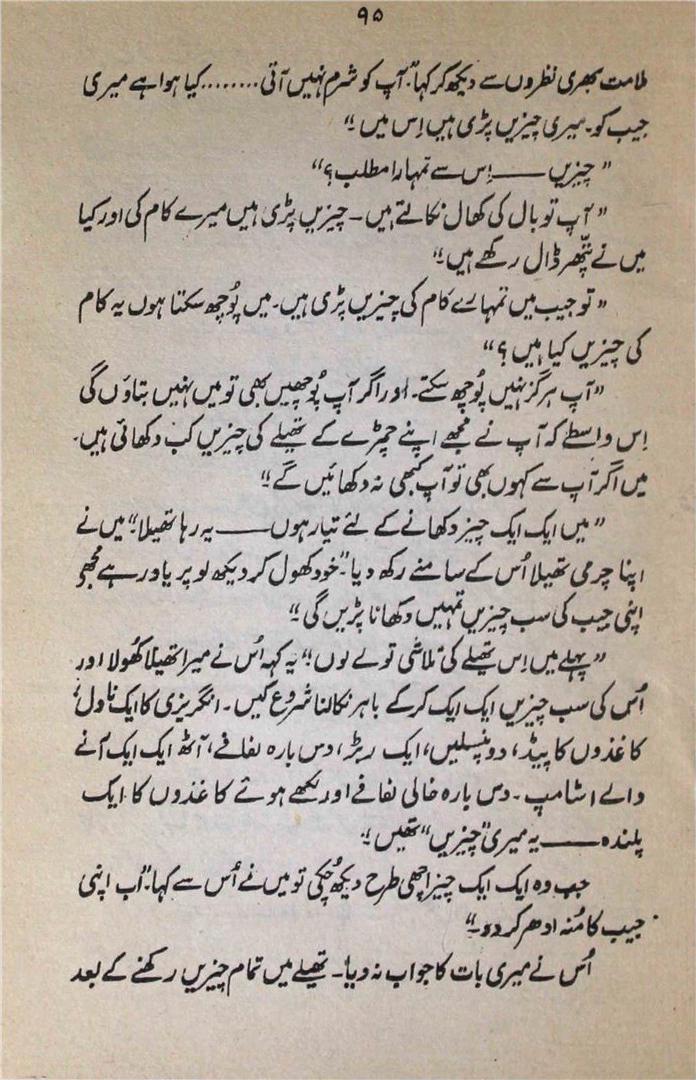 ۹۵
ملامت بھری نظروں سے دیکھ کر کہا۔ "آپ کو شرم نہیں آتی........ کیا ہوا ہے میری
جیب کو۔ میری چیزیں پڑی ہیں اِس میں۔"
"چیزیں ——— اِس سے تمہارا مطلب؟"
"آپ تو بال کی کھال نکالتے ہیں۔ چیزیں پڑی ہیں میرے کام کی اور کیا
میں نے پتّھر ڈال رکھے ہیں۔"
"تو جیب میں تمہارے کام کی چیزیں پڑی ہیں۔ میں پُوچھ سکتا ہوں یہ کام
کی چیزیں کیا ہیں؟"
"آپ ہرگز نہیں پُوچھ سکتے۔ اور اگر آپ پُوچھیں بھی تو میں نہیں بتاؤں گی
اِس واسطے کہ آپ نے مجھے اپنے چمڑے کے تھیلے کی چیزیں کب دکھائی ہیں۔
میں اگر آپ سے کہوں بھی تو آپ کبھی نہ دکھائیں گے۔"
"میں ایک ایک چیز دکھانے کے لئے تیار ہوں ——— یہ رہا تھیلا۔" میں نے
اپنا چرمی تھیلا اُس کے سامنے رکھ دیا۔ "خود کھول کر دیکھ لو پر یاد رہے مجھے
اپنی جیب کی سب چیزیں تمہیں دکھانا پڑیں گی۔"
"پہلے میں اِس تھیلے کی تلاشی تو لے لوں۔" یہ کہہ اُس نے میرا تھیلا کھُولا اور
اُس کی سب چیزیں ایک ایک کرکے باہر نکالنا شروع کیں۔ انگریزی کا ایک ناول،
کاغذوں کا پیڈ، دو پنسلیں، ایک ربڑ، دس بارہ لفافے، آٹھ ایک ایک آنے
والے اشٹامپ۔ دس بارہ خالی لفافے اور لکھے ہوئے کاغذوں کا ایک
پلندہ ——— یہ میری "چیزیں" تھیں۔
جب وہ ایک ایک چیز اچھی طرح دیکھ چُکی تو میں نے اُس سے کہا۔ "اب اپنی
جیب کا مُنہ ادھر کر دو۔"
اُس نے میری بات کا جواب نہ دیا۔ تھیلے میں تمام چیزیں رکھنے کے بعد